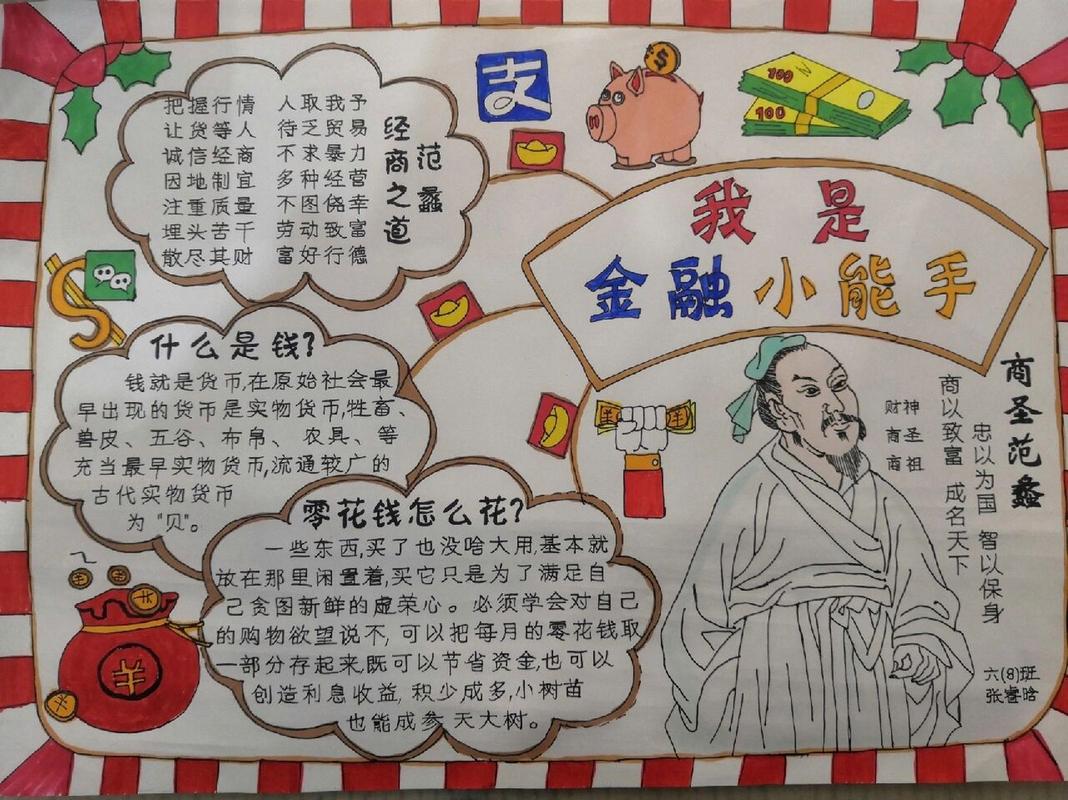 我是
金融小能手
范蠡
经商之道
人取我予 把握行情
待乏贸易 让货等人
不求暴力 诚信经商
多种经营 因地制宜
不图侥幸 注重质量
劳动致富 埋头苦干
富好行德 散尽其财
什么是钱?
钱就是货币,在原始社会最
早出现的货币是实物货币,牲畜、
兽皮、五谷、布帛、农具、等
充当最早实物货币,流通较广的
古代实物货币
为"贝"。
零花钱怎么花?
一些东西,买了也没啥大用,基本就
放在那里闲置着,买它只是为了满足自
己贪图新鲜的虚荣心。必须学会对自己
的购物欲望说不,可以把每月的零花钱取
一部分存起来,既可以节省资金,也可以
创造利息收益,积少成多,小树苗
也能成参天大树。
商圣范蠡
忠以为国 智以保身
商以致富 成名天下
财神
商圣
商祖
六(8)班
张睿晗
支
$
100
100
羊
羊